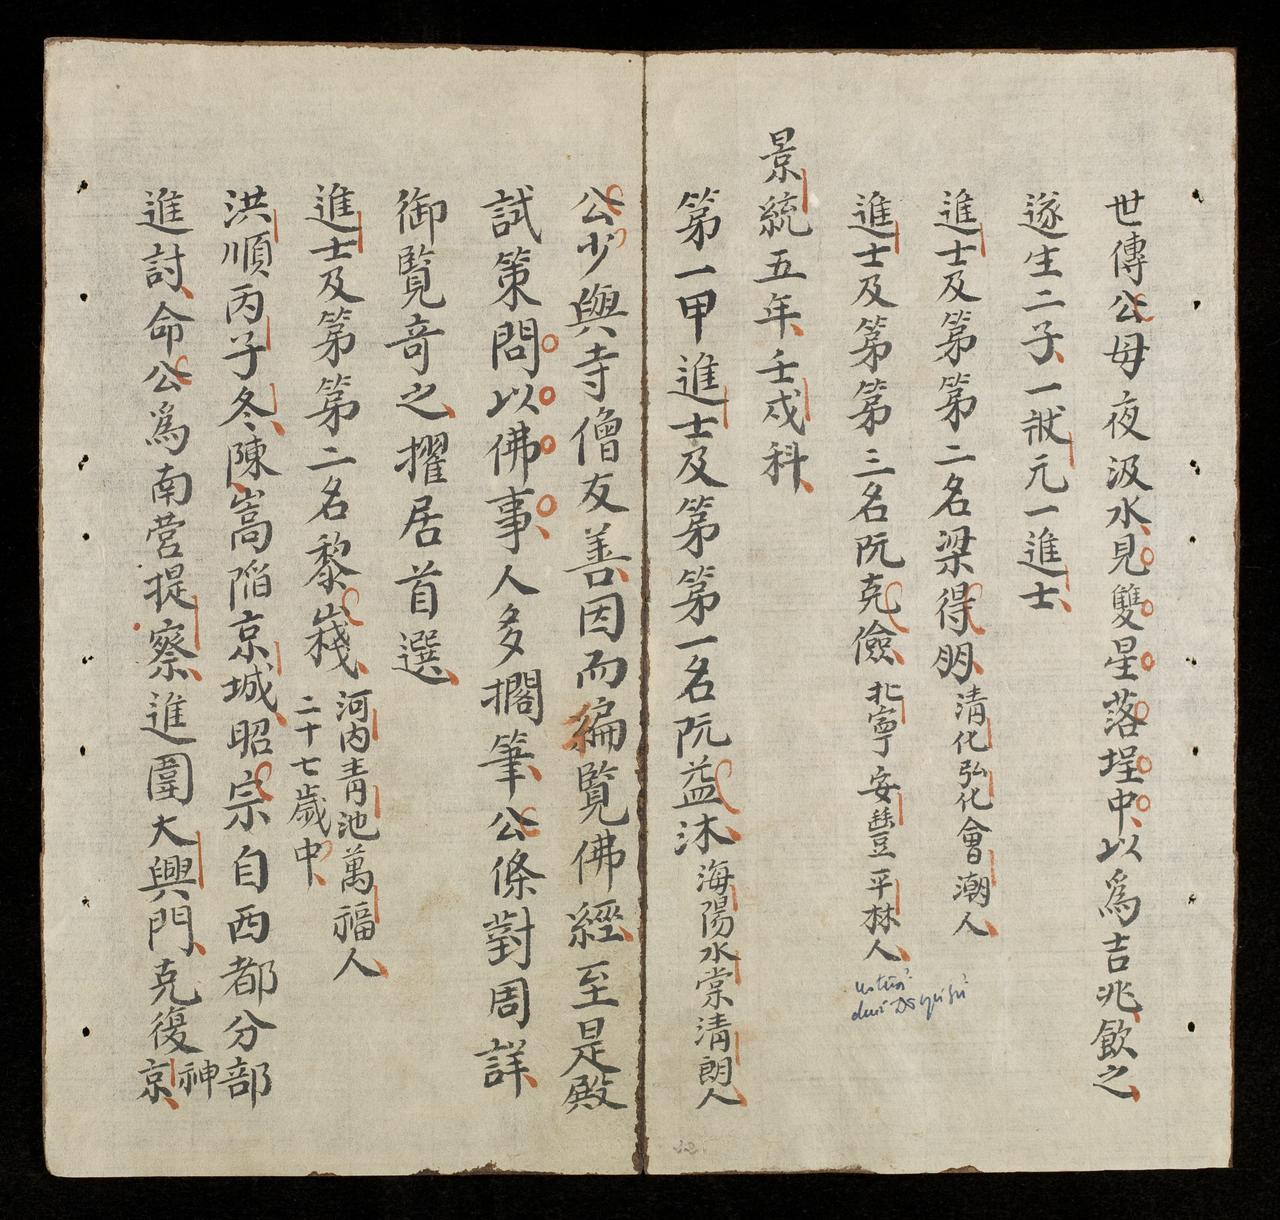 世傳公母夜汲水見雙星落埕中以為吉兆飲之
遂生二子一狀元一進士
進士及第第二名梁得朋清化弘化會潮人
進士及第第三名阮克儉北寧安豐平林人
景統五年壬戌科
第一甲進士及第第一名阮益沐海陽水棠清朗人
公少與寺僧友善因而編覽佛經至是殿
試策問以佛事人多擱筆公條對周詳
御覽奇之擢居首選
進士及第第二名黎㠝河內青池萬福人
二十七歲中
洪順丙子冬陳暠陷京城昭宗自西都分部
進討命公為南營提察進圍大興門克復神
京